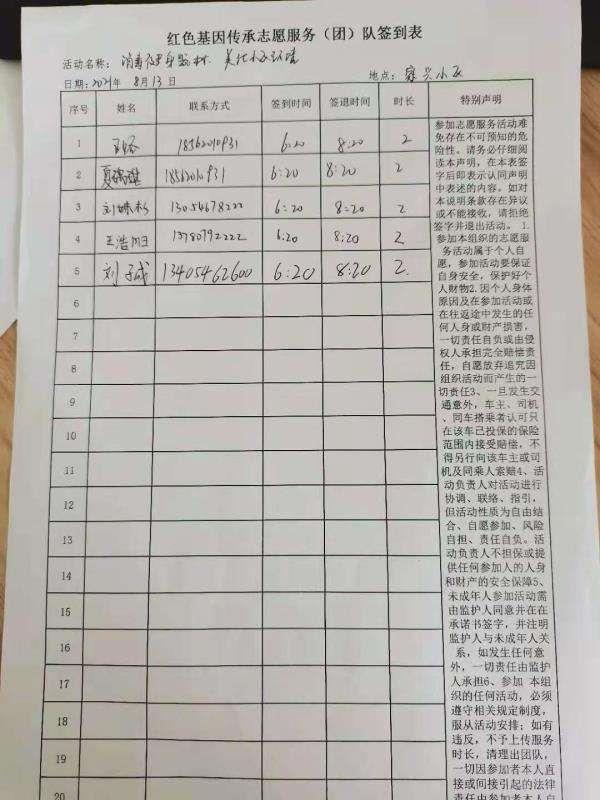 红色基因传承志愿服务（团）队签到表
活动名称： 小区环境
日期：2021年 8月13日 地点： 小区
序号 姓名 联系方式 签到时间 签退时间 时长 特别声明
1 18562010931 6:20 8:20 2
2 18562010931 6:20 8:20 2
3 刘 13054678222 6:20 8:20 2
4 王浩 13780792222 6:20 8:20 2
5 刘子诚 13405462600 6:20 8:20 2
6
7
8
9
10
11
12
13
14
15
16
17
18
19
20
参加志愿服务活动难
免存在不可预知的危
险性。请务必仔细阅
读本声明，在本表签
字后即表示认同声明
中表述的内容。如对
本说明条款存在异议
或不能接收，请拒绝
签字并退出活动。 1.
参加本组织的志愿服
务活动属于个人自
愿，参加活动要保证
自身安全，保护好个
人财物2.因个人身体
原因及在参加活动或
在往返途中发生的任
何人身或财产损害，
一切责任自负或由侵
权人承担完全赔偿责
任，自愿放弃追究因
组织活动而产生的一
切责任3、一旦发生交
通意外，车主、司机
、同车搭乘者认可只
在该车已投保的保险
范围内接受赔偿，不
得另行向该车主或司
机及同乘人索赔4、活
动负责人对活动进行
协调、联络、指引，
但活动性质为自由结
合、自愿参加、风险
自担、责任自负。活
动负责人不担保或提
供任何参加人的人身
和财产的安全保障5、
未成年人参加活动需
由监护人同意并在在
承诺书签字，并注明
监护人与未成年人关
系，如发生任何意
外，一切责任由监护
人承担6、参加 本组
织的任何活动，必须
遵守相关规定制度，
服从活动安排；如有
违反，不予上传服务
时长，清理出团队，
一切因参加者本人直
接或间接引起的法律
责任由参加者本人自